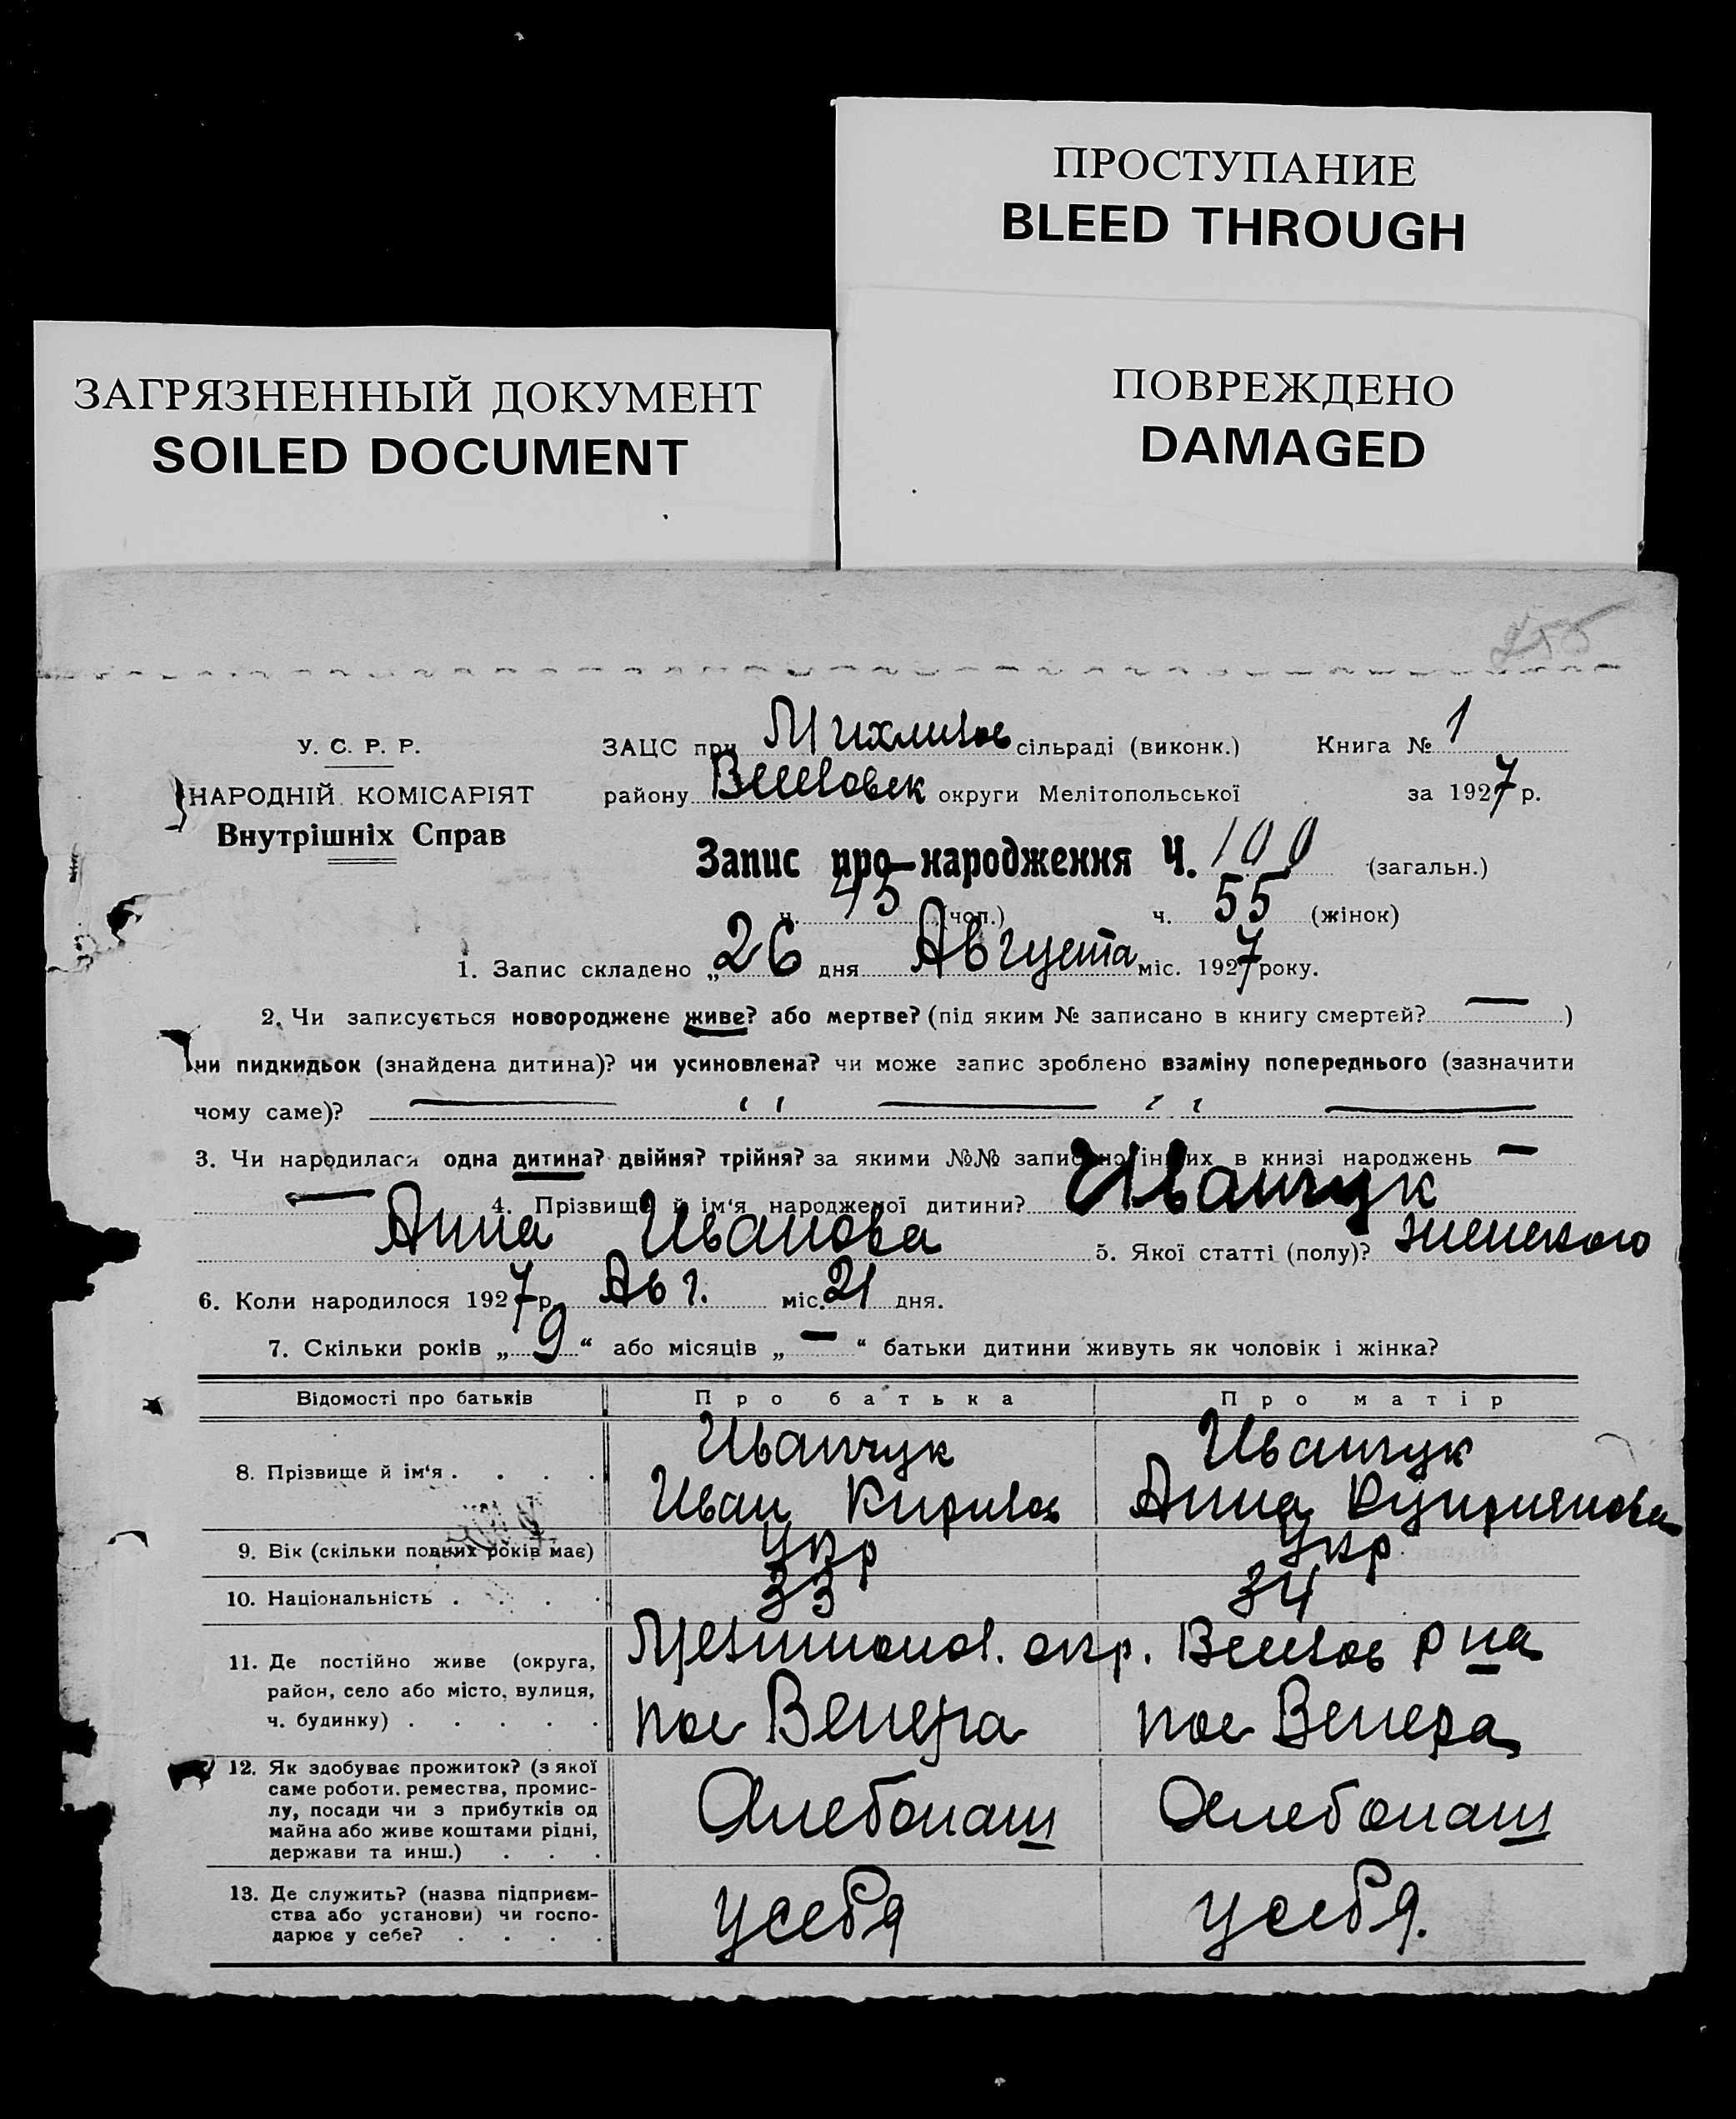 ПРОСТУПАНИЕ
BLEED THROUGH
ПОВРЕЖДЕНО
DAMAGED
ЗАГРЯЗНЕННЫЙ ДОКУМЕНТ
SOILED DOCUMENT
У. С. Р. Р.
НАРОДНІЙ КОМІСАРІЯТ
Внутрішніх Справ
ЗАЦС при сільраді (виконк.) Книга № 1
району округи Мелітопольської за 1927 р.
Запис про народження Ч. 100 (загальн.)
ч. 45 (чол.) ч. 55 (жінок)
1. Запис складено „26 дня Августа міс. 1927 року.
2. Чи записується новороджене живе? або мертве? (під яким № записано в книгу смертей? — )
чи пидкидьок (знайдена дитина)? чи усиновлена? чи може запис зроблено взаміну попереднього (зазначити
чому саме)? — " — " —
3. Чи народилася одна дитина? двійня? трійня? за якими №№ записано інших в книзі народжень —
— 4. Прізвище й ім'я народженої дитини? Иванчук
Анна Иванова 5. Якої статті (полу)? женского
6. Коли народилося 1927 р. Авг. міс. 21 дня.
7. Скільки років „ 9 “ або місяців „ — “ батьки дитини живуть як чоловік і жінка?
Відомості про батьків Про батька Про матір
8. Прізвище й ім'я . . . . Иванчук Иванчук
Иван Кирилов Анна Куприянова
9. Вік (скільки повних років має) Укр Укр
10. Національність . . . . 33 34
11. Де постійно живе (округа, район, село або місто, вулиця, ч. будинку) . . . . . Мелитопол. окр. Веселов р на
пос Венера пос Венера
12. Як здобуває прожиток? (з якої саме роботи, ремества, промислу, посади чи з прибутків од майна або живе коштами рідні, держави та инш.) . . . Хлебопаш Хлебопаш
13. Де служить? (назва підприємства або установи) чи господарює у себе? . . . . у себя у себя.